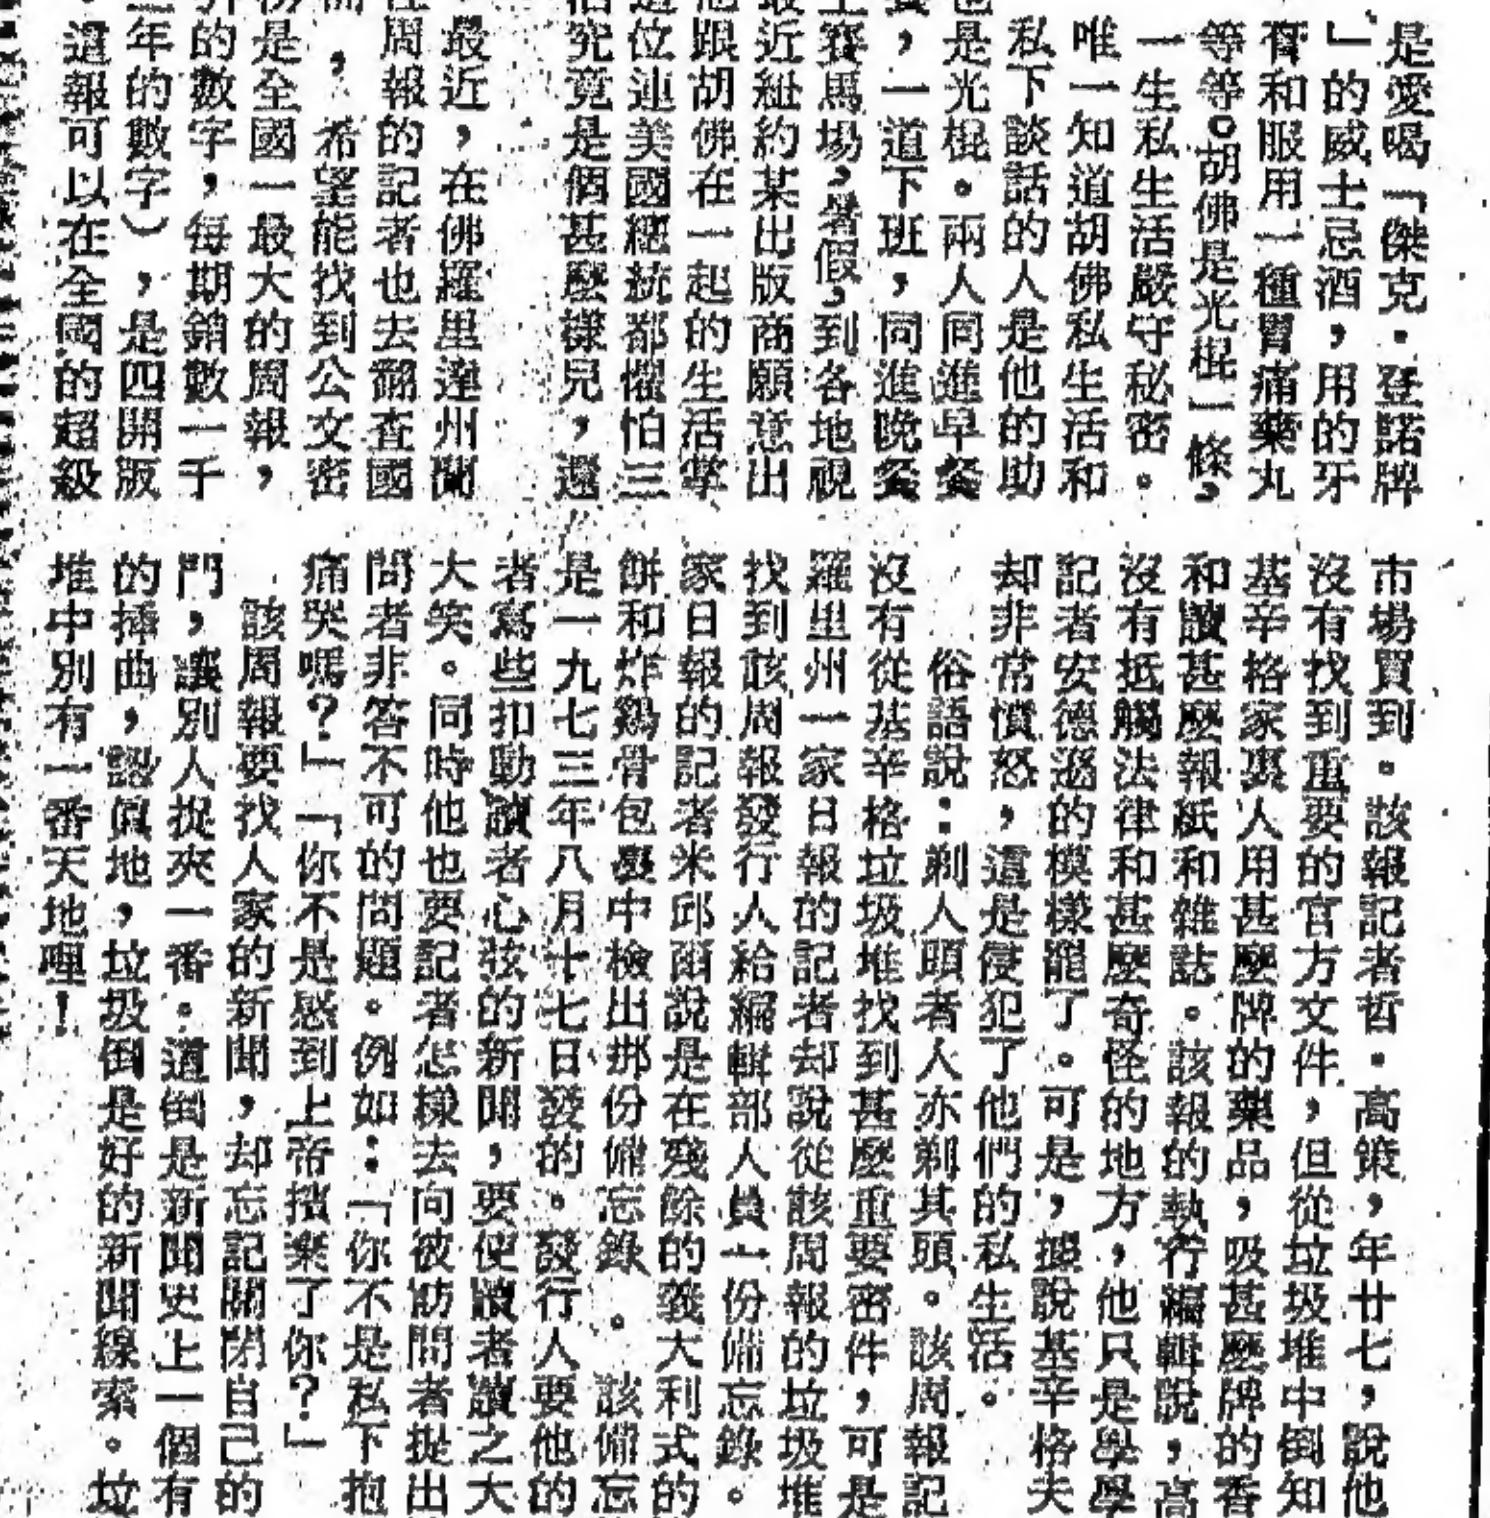 是愛喝「傑克·登諾牌
」的威士忌酒，用的牙
膏和服用一種胃痛藥丸
等等。胡佛是光棍一條，
一生私生活嚴守秘密。
唯一知道胡佛私生活和
私下談話的人是他的助
是光棍。兩人同進早餐
，一道下班，同進晚餐
賽馬場，暑假，到各地視
最近紐約某出版商願意出
他跟胡佛在一起的生活掌
這位連美國總統都懼怕三
究竟是個甚麼樣兒，還
最近，在佛羅里達州蘭
周報的記者也去翻查國
，希望能找到公文密
份是全國一最大的周報，
的數字，每期銷數一千
年的數字），是四開版
。這報可以在全國的超級
市場買到。該報記者哲·高策，年廿七，說他
沒有找到重要的官方文件，但從垃圾堆中倒知
基辛格家裏人用甚麼牌的藥品，吸甚麼牌的香
和讀甚麼報紙和雜誌。該報的執行編輯說，高
沒有抵觸法律和甚麼奇怪的地方，他只是學學
記者安德遜的模樣罷了。可是，據說基辛格夫
却非常憤怒，這是侵犯了他們的私生活。
俗語說：剃人頭者人亦剃其頭。該周報記
沒有從基辛格垃圾堆找到甚麼重要密件，可是
羅里州一家日報的記者却說從該周報的垃圾堆
找到該周報發行人給編輯部人員一份備忘錄。
家日報的記者米邱爾說是在殘餘的義大利式的
餅和炸鷄骨包裹中檢出那份備忘錄。該備忘
是一九七三年八月十七日發的。發行人要他的
者寫些扣動讀者心弦的新聞，要使讀者讀之大
大笑。同時他也要記者怎樣去向被訪問者提出
問者非答不可的問題。例如：「你不是私下抱
痛哭嗎？」「你不是感到上帝擯棄了你？」
該周報要找人家的新聞，却忘記關閉自己的
門，讓別人捉夾一番。這倒是新聞史上一個有
的插曲，認真地，垃圾倒是好的新聞線索。垃
堆中別有一番天地哩！